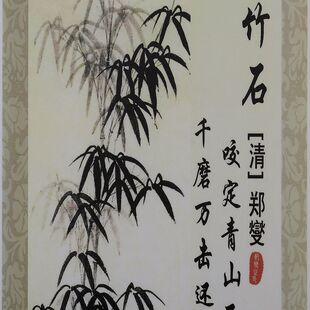 竹石
[清]郑燮
咬定青山
千磨万击还